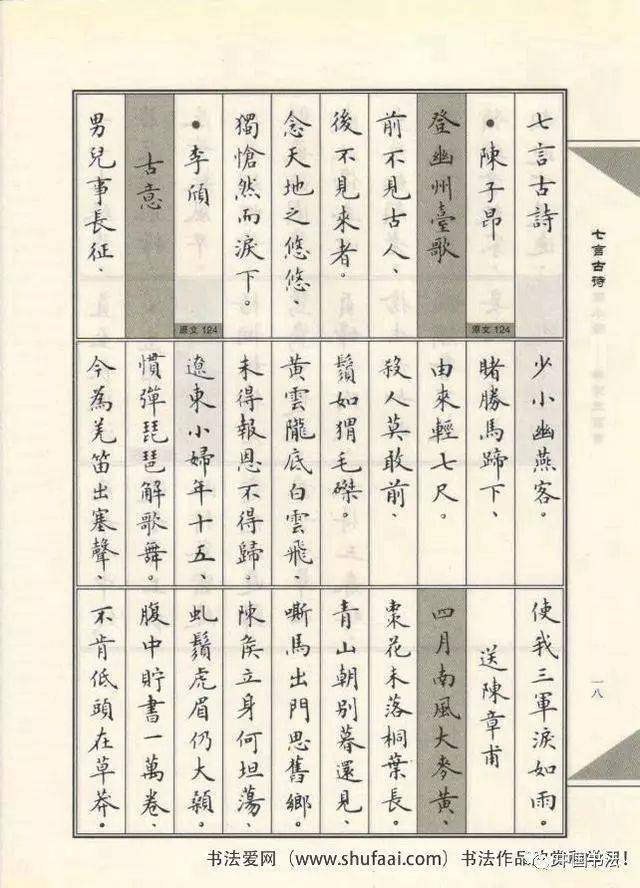 七言古詩
• 陳子昂
原文 124
登幽州臺歌
前不見古人、
後不見來者。
念天地之悠悠、
獨愴然而淚下。
• 李頎
原文 124
古意
男兒事長征、
少小幽燕客。
賭勝馬蹄下、
由來輕七尺。
殺人莫敢前、
鬚如猬毛磔。
黃雲隴底白雲飛、
未得報恩不得歸。
遼東小婦年十五、
慣彈琵琶解歌舞。
今為羌笛出塞聲、
使我三軍淚如雨。
送陳章甫
四月南風大麥黃、
棗花未落桐葉長。
青山朝別暮還見、
嘶馬出門思舊鄉。
陳侯立身何坦蕩、
虬鬚虎眉仍大顙。
腹中貯書一萬卷、
不肯低頭在草莽。
七言古诗
一八
书法爱网（www.shufaai.com）书法作品欣赏和学习！
中国书法